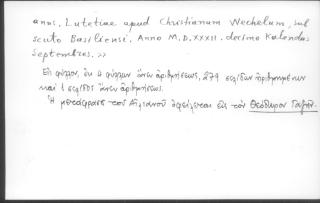 anni. Lutetiae apud Christianum Wechelum, sub
scuto Basiliensi. Anno M.D.XXXII. decimo Kalendas
Septembres. »
Εἰς φύλλον, ὧν φύλλα ἄνευ ἀριθμήσεως, 279 σελίδων ἠριθμημένων
καὶ 1 σελίδος ἄνευ ἀριθμήσεως.
Ἡ μετάφρασις τοῦ Αἰλιανοῦ ὀφείλεται εἰς τὸν Θεόδωρον Γαζῆν.